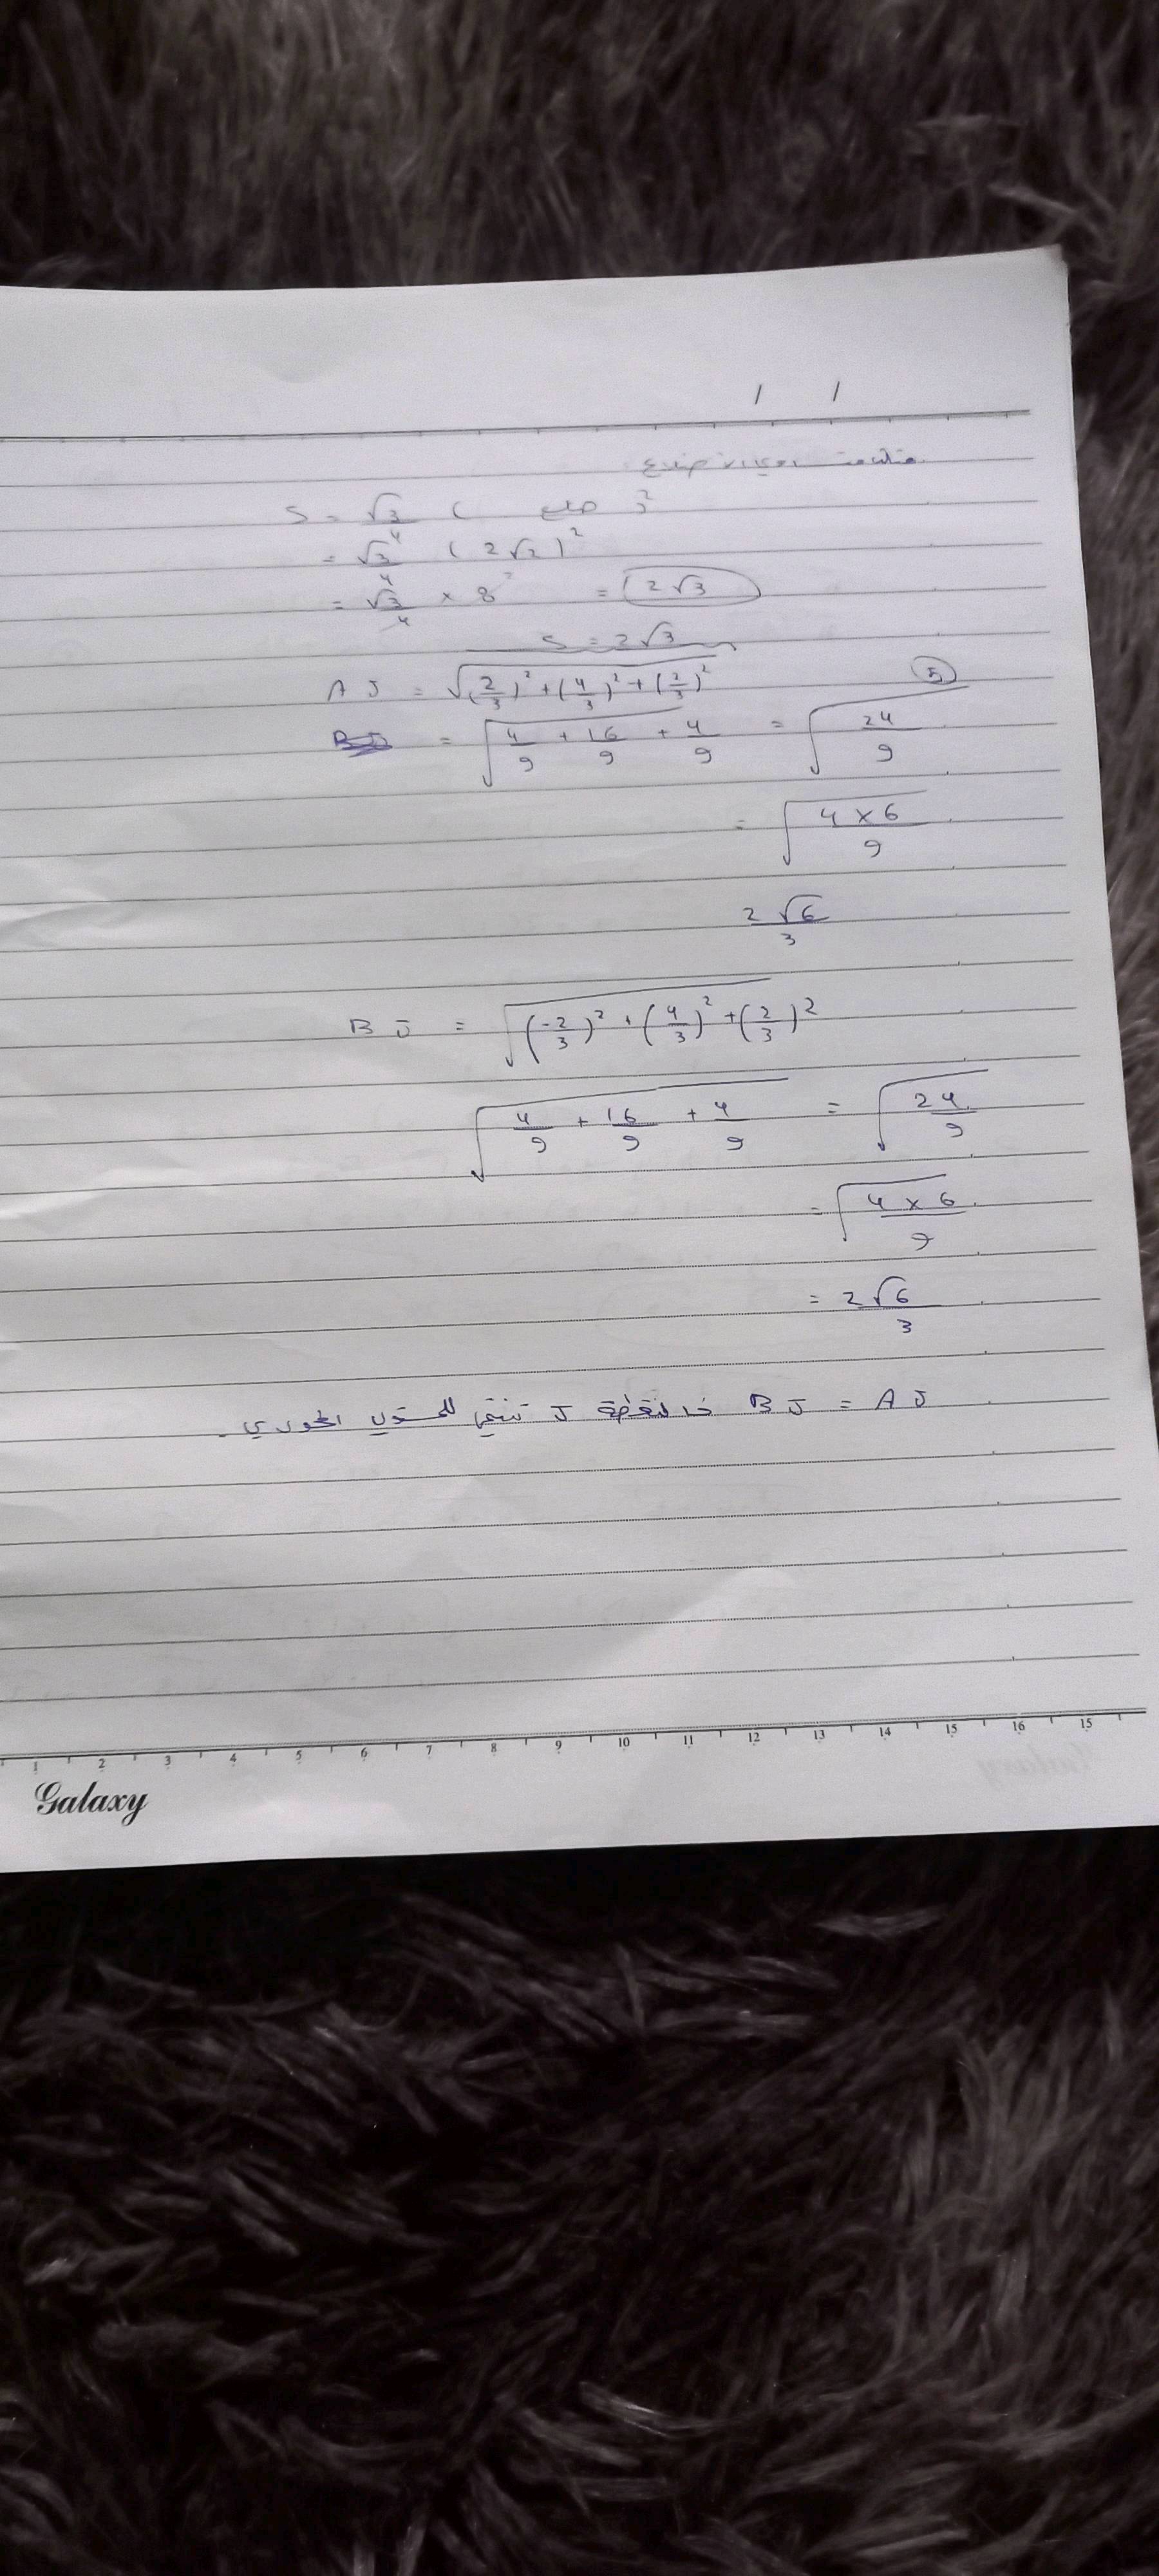 / /
مثلث متساوي الأضلاع
S = √3/4 (ضلع)²
= √3/4 (2√2)²
= √3/4 × 8 = 2√3
S = 2√3
⑤ AJ = √((2/3)² + (4/3)² + (2/3)²)
= √(4/9 + 16/9 + 4/9) = √(24/9)
= √(4×6/9)
2√6/3
BJ = √((-2/3)² + (4/3)² + (2/3)²)
√(4/9 + 16/9 + 4/9) = √(24/9)
= √(4×6/9)
= 2√6/3
BJ = AJ فالنقطة J تنتمي للمستوي المحوري.
1 2 3 4 5 6 7 8 9 10 11 12 13 14 15 16 15
Galaxy